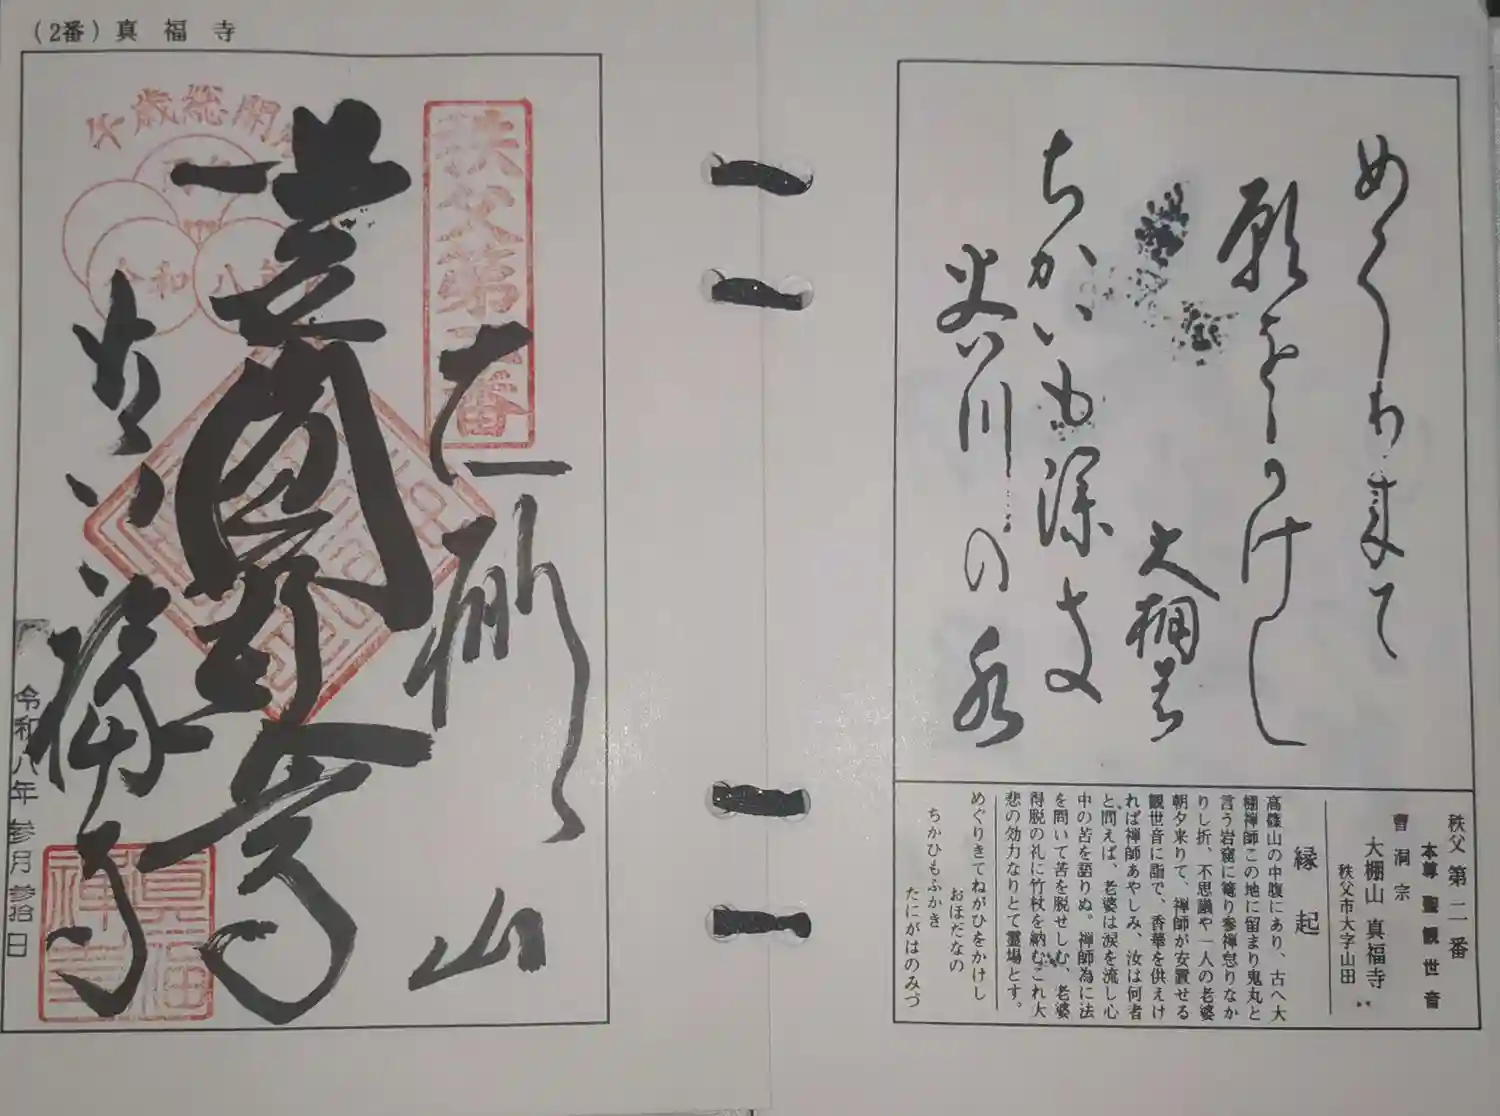 めぐり来て
願をかけし
大棚の
ちかいも深き
谷川の水
秩父 第二番
本尊 聖観世音
曹洞宗
大棚山 真福寺
秩父市大字山田
縁起
高篠山の中腹にあり、古へ大
棚禅師この地に留まり鬼丸と
言う岩窟に篭り参禅怠りなか
りし折、不思議や一人の老婆
朝夕来りて、禅師が安置せる
観世音に詣で、香華を供えけ
れば禅師あやしみ、汝は何者
と問えば、老婆は涙を流し心
中の苦を語りぬ。禅師為に法
を問いて苦を脱せしむ、老婆
得脱の礼に竹杖を納むこれ大
悲の効力なりとて霊場とす。
めぐりきてねがひをかけし
おほだなの
ちかひもふかき
たにがはのみづ
(2番) 真福寺
秩父第二番
大棚山
午歳総開
令和八年
真福寺
令和八年 参月 参拾日